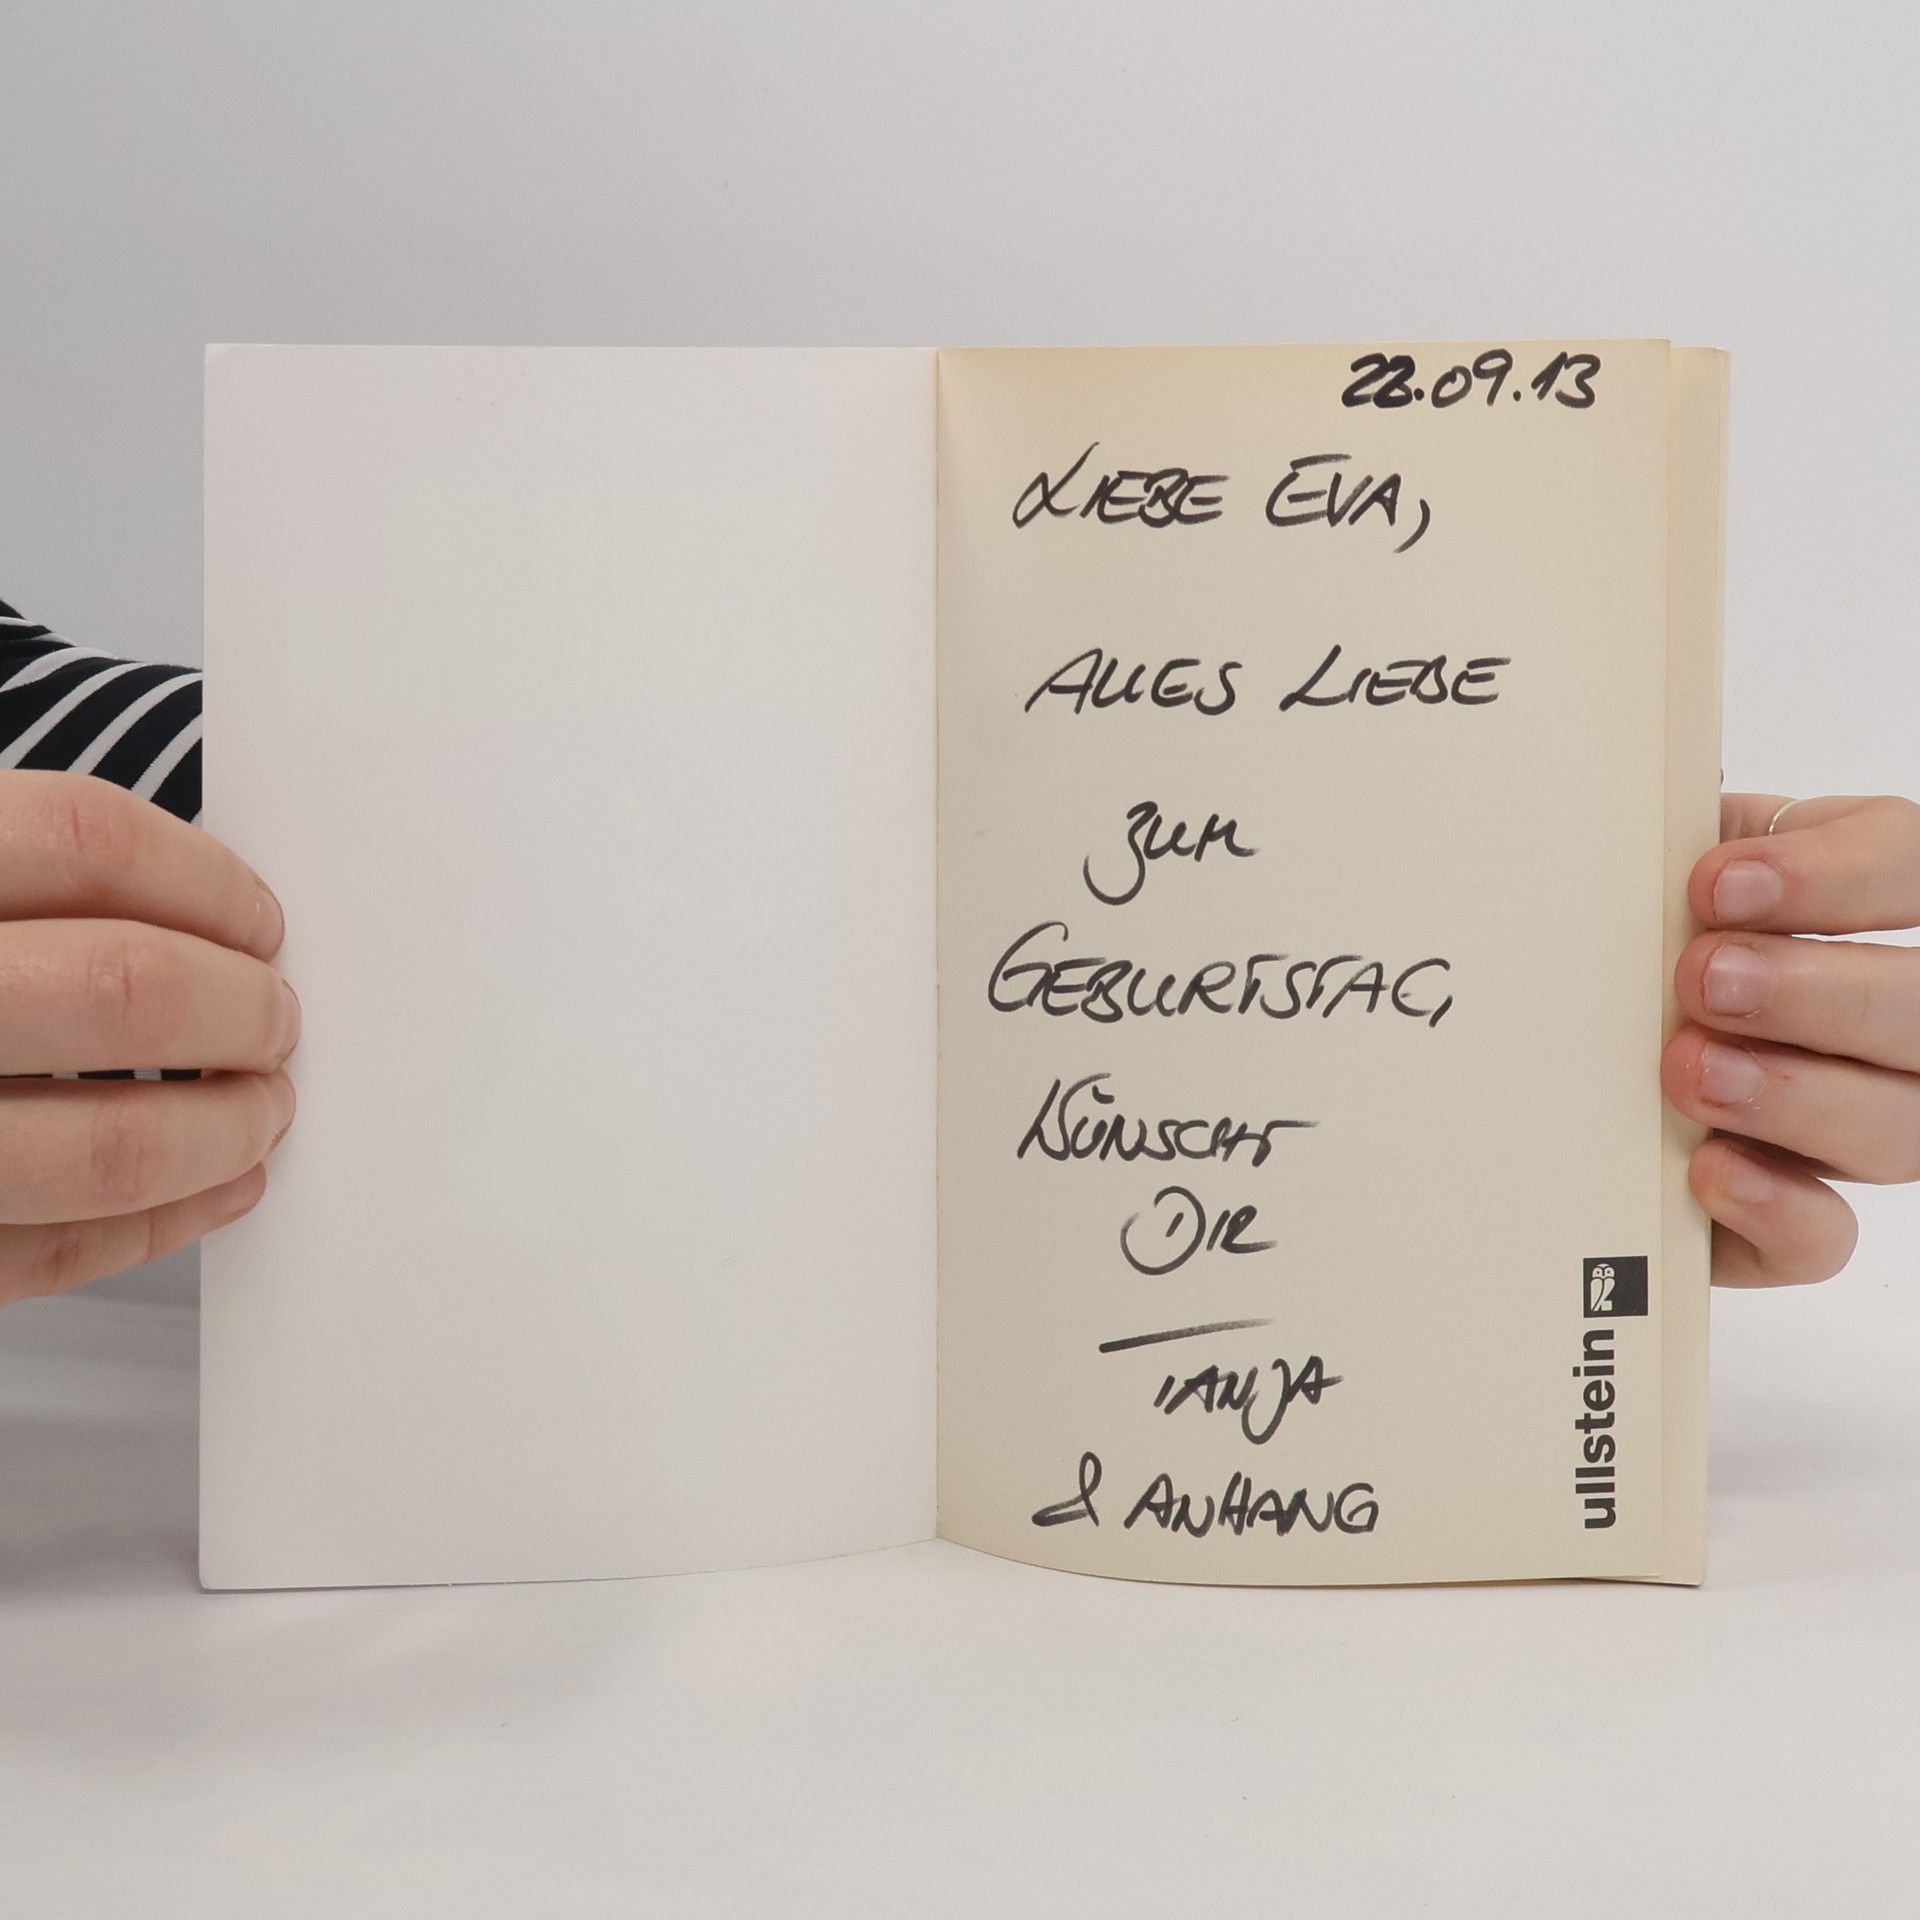 22.09.13
LIEBE EVA,
ALLES LIEBE
ZUM
GEBURTSTAG,
WÜNSCHT
DIR
TANJA
& ANHANG
ullstein